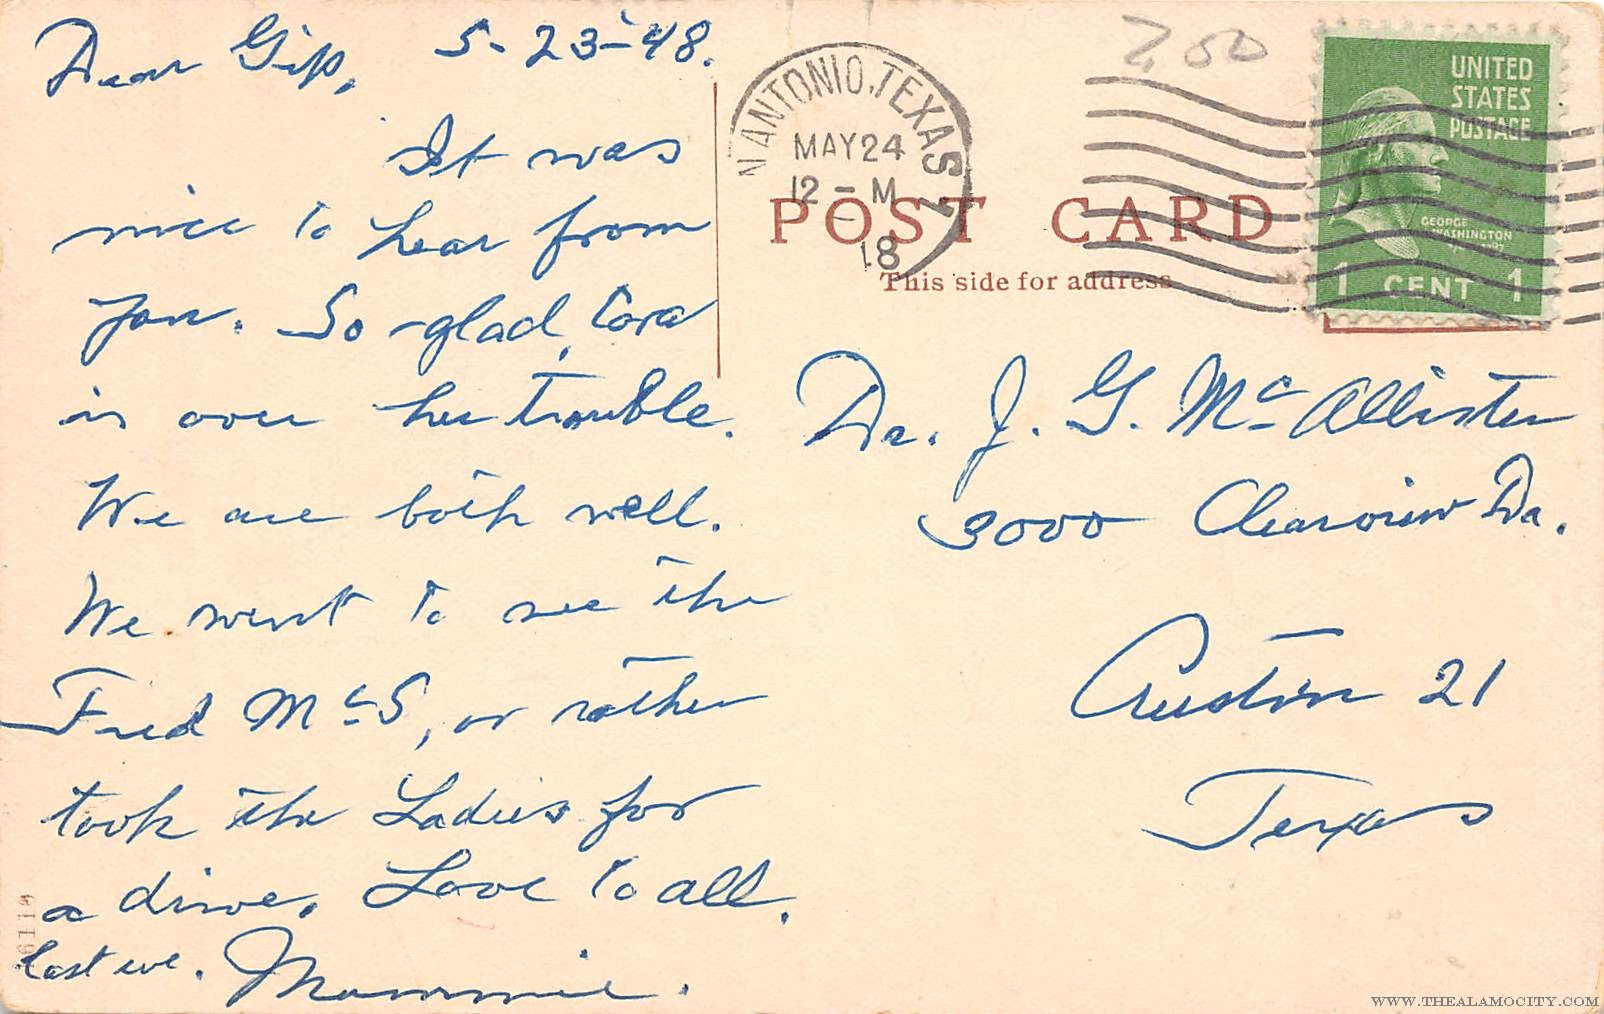 Dear Gip, 5-23-48.
It was
nice to hear from
you. So glad, Cora
is over her trouble.
We are both well.
We went to see the
Fred McS, or rather
took the Ladies for
a drive. Love to all.
last eve. Mammie.
N ANTONIO, TEXAS 1
MAY 24
12 - M
18
7.50
UNITED
STATES
POSTAGE
GEORGE
WASHINGTON
1 CENT 1
POST CARD
This side for address
Dr. J. G. McAllister
3000 Clearview Dr.
Austin 21
Texas
WWW.THEALAMOCITY.COM